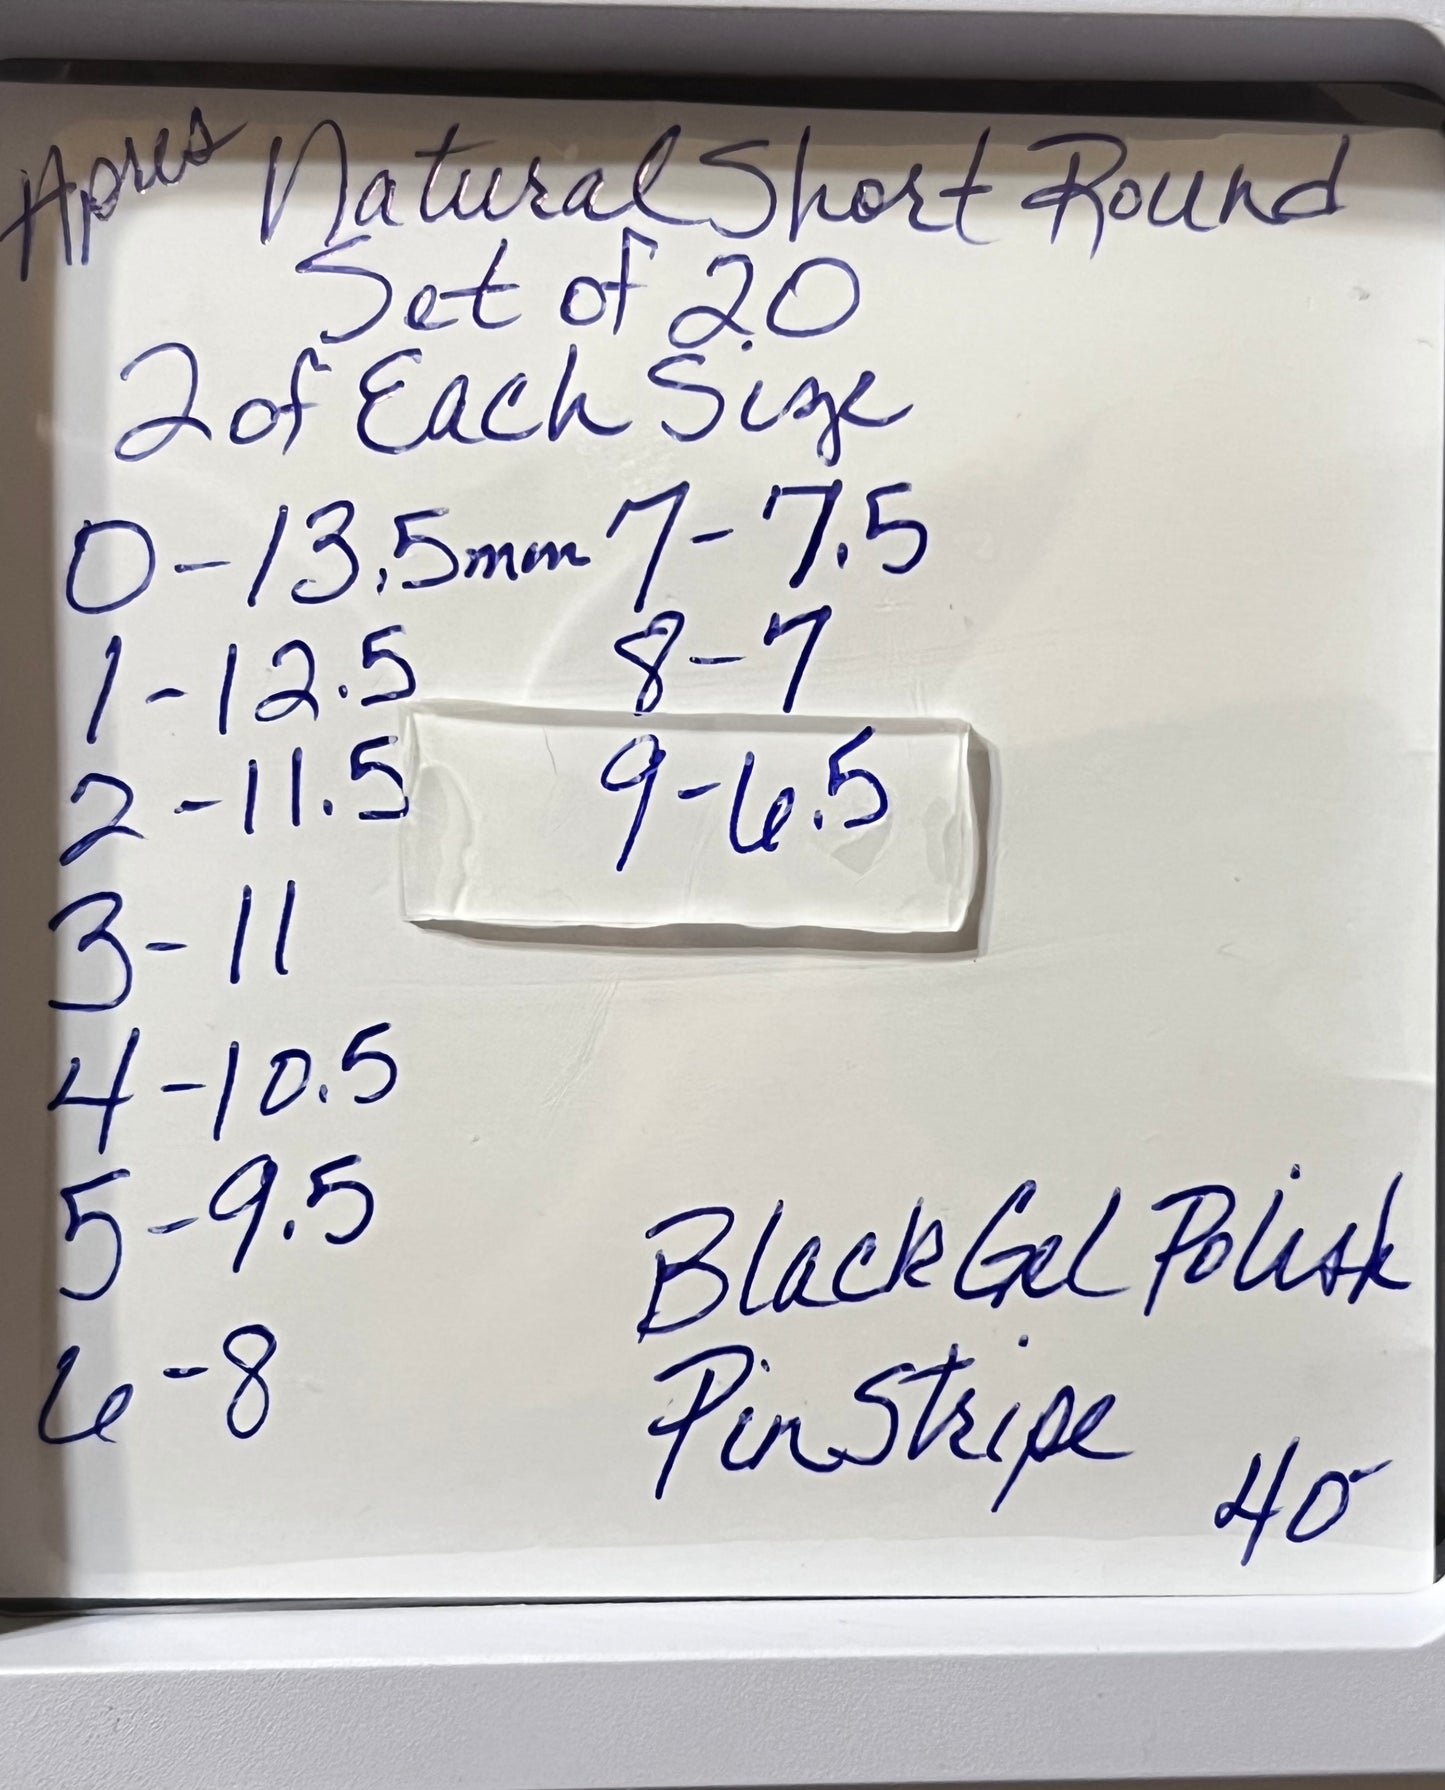 Apres Natural Short Round
Set of 20
2 of Each Size
0-13.5mm
1-12.5
2-11.5
3-11
4-10.5
5-9.5
6-8
7-7.5
8-7
9-6.5
Black Gel Polish
Pin Stripe
40